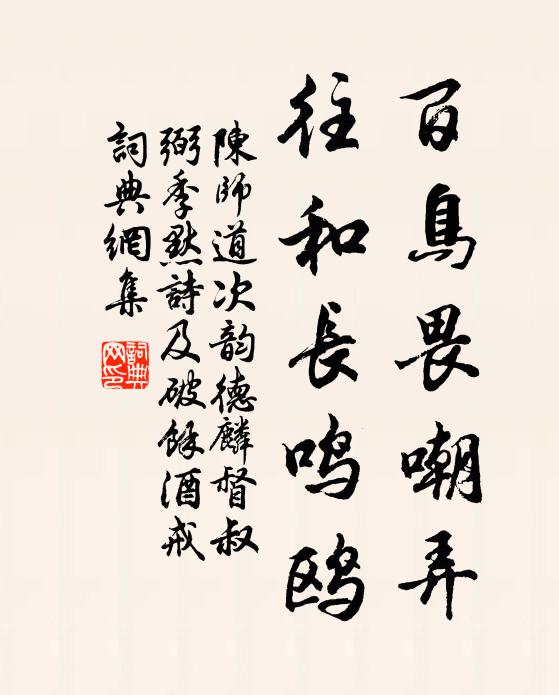 百鳥畏嘲弄
往和長鳴鸥
陳師道次韵德麟督叔
弼季默詩及破餘酒戒
詞典網集
詞典
网印